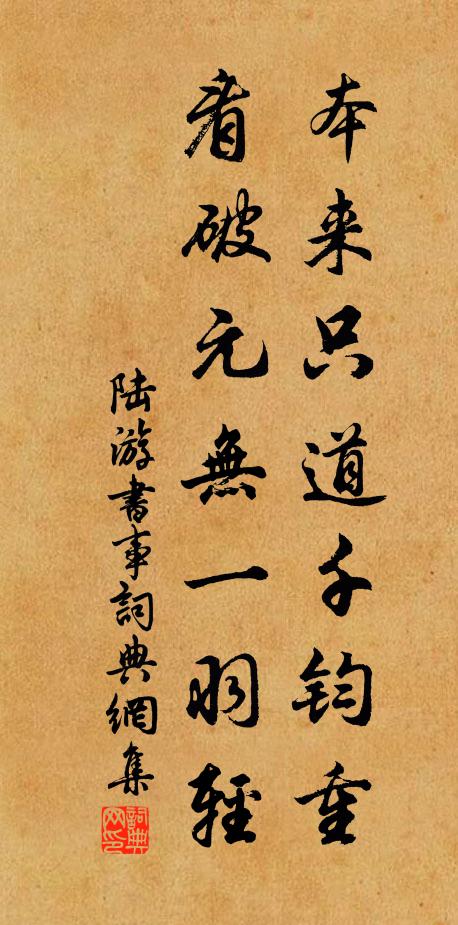 本来只道千鈞重
看破元無一羽輕
陆游書事詞典網集
詞典网印